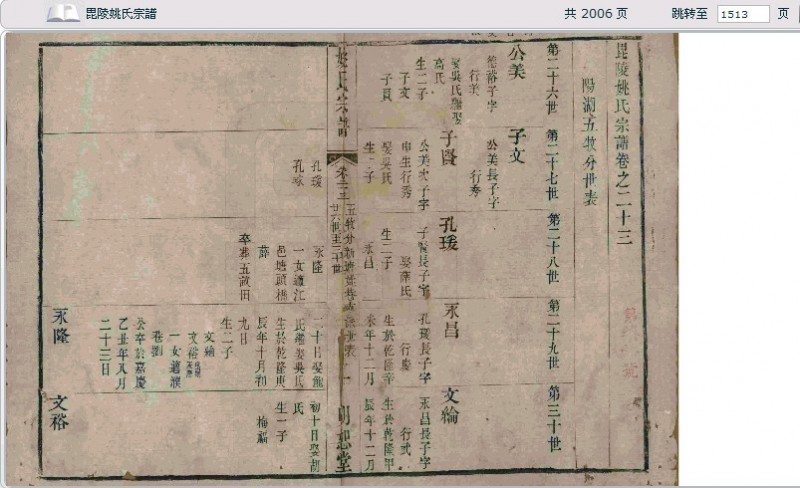 毘陵姚氏宗譜
共 2006 页
跳转至 1513 页
毘陵姚氏宗譜卷之二十三
陽湖五牧分世表
第二十六世 第二十七世 第二十八世 第二十九世 第三十世
公美
德裕子字
行美
娶吳氏繼娶
高氏
生二子
子文
子賢
子文
公美長子字
行秀
子賢
公美次子字
娶吳氏
生二子
孔瑗
孔瑗
子賢長子字
娶薛氏
生二子
永昌
永隆
一女適江
邑塘頭橋
薛
卒葬五畝田
永昌
孔瑗長子字
行慶
生於乾隆辛
未年十二月
二十日娶龍
氏繼娶吳氏
生於乾隆庚
辰年十月初
九日
生二子
文綸
文裕
一女適濮
巷劉
公卒於嘉慶
乙丑年八月
二十三日
文綸
永昌長子字
行式
生於乾隆甲
辰年十二月
初十日娶胡
氏
生一子
姚氏宗譜
卷二十三
廿六世至三十世
一
明恕堂
永隆
文裕